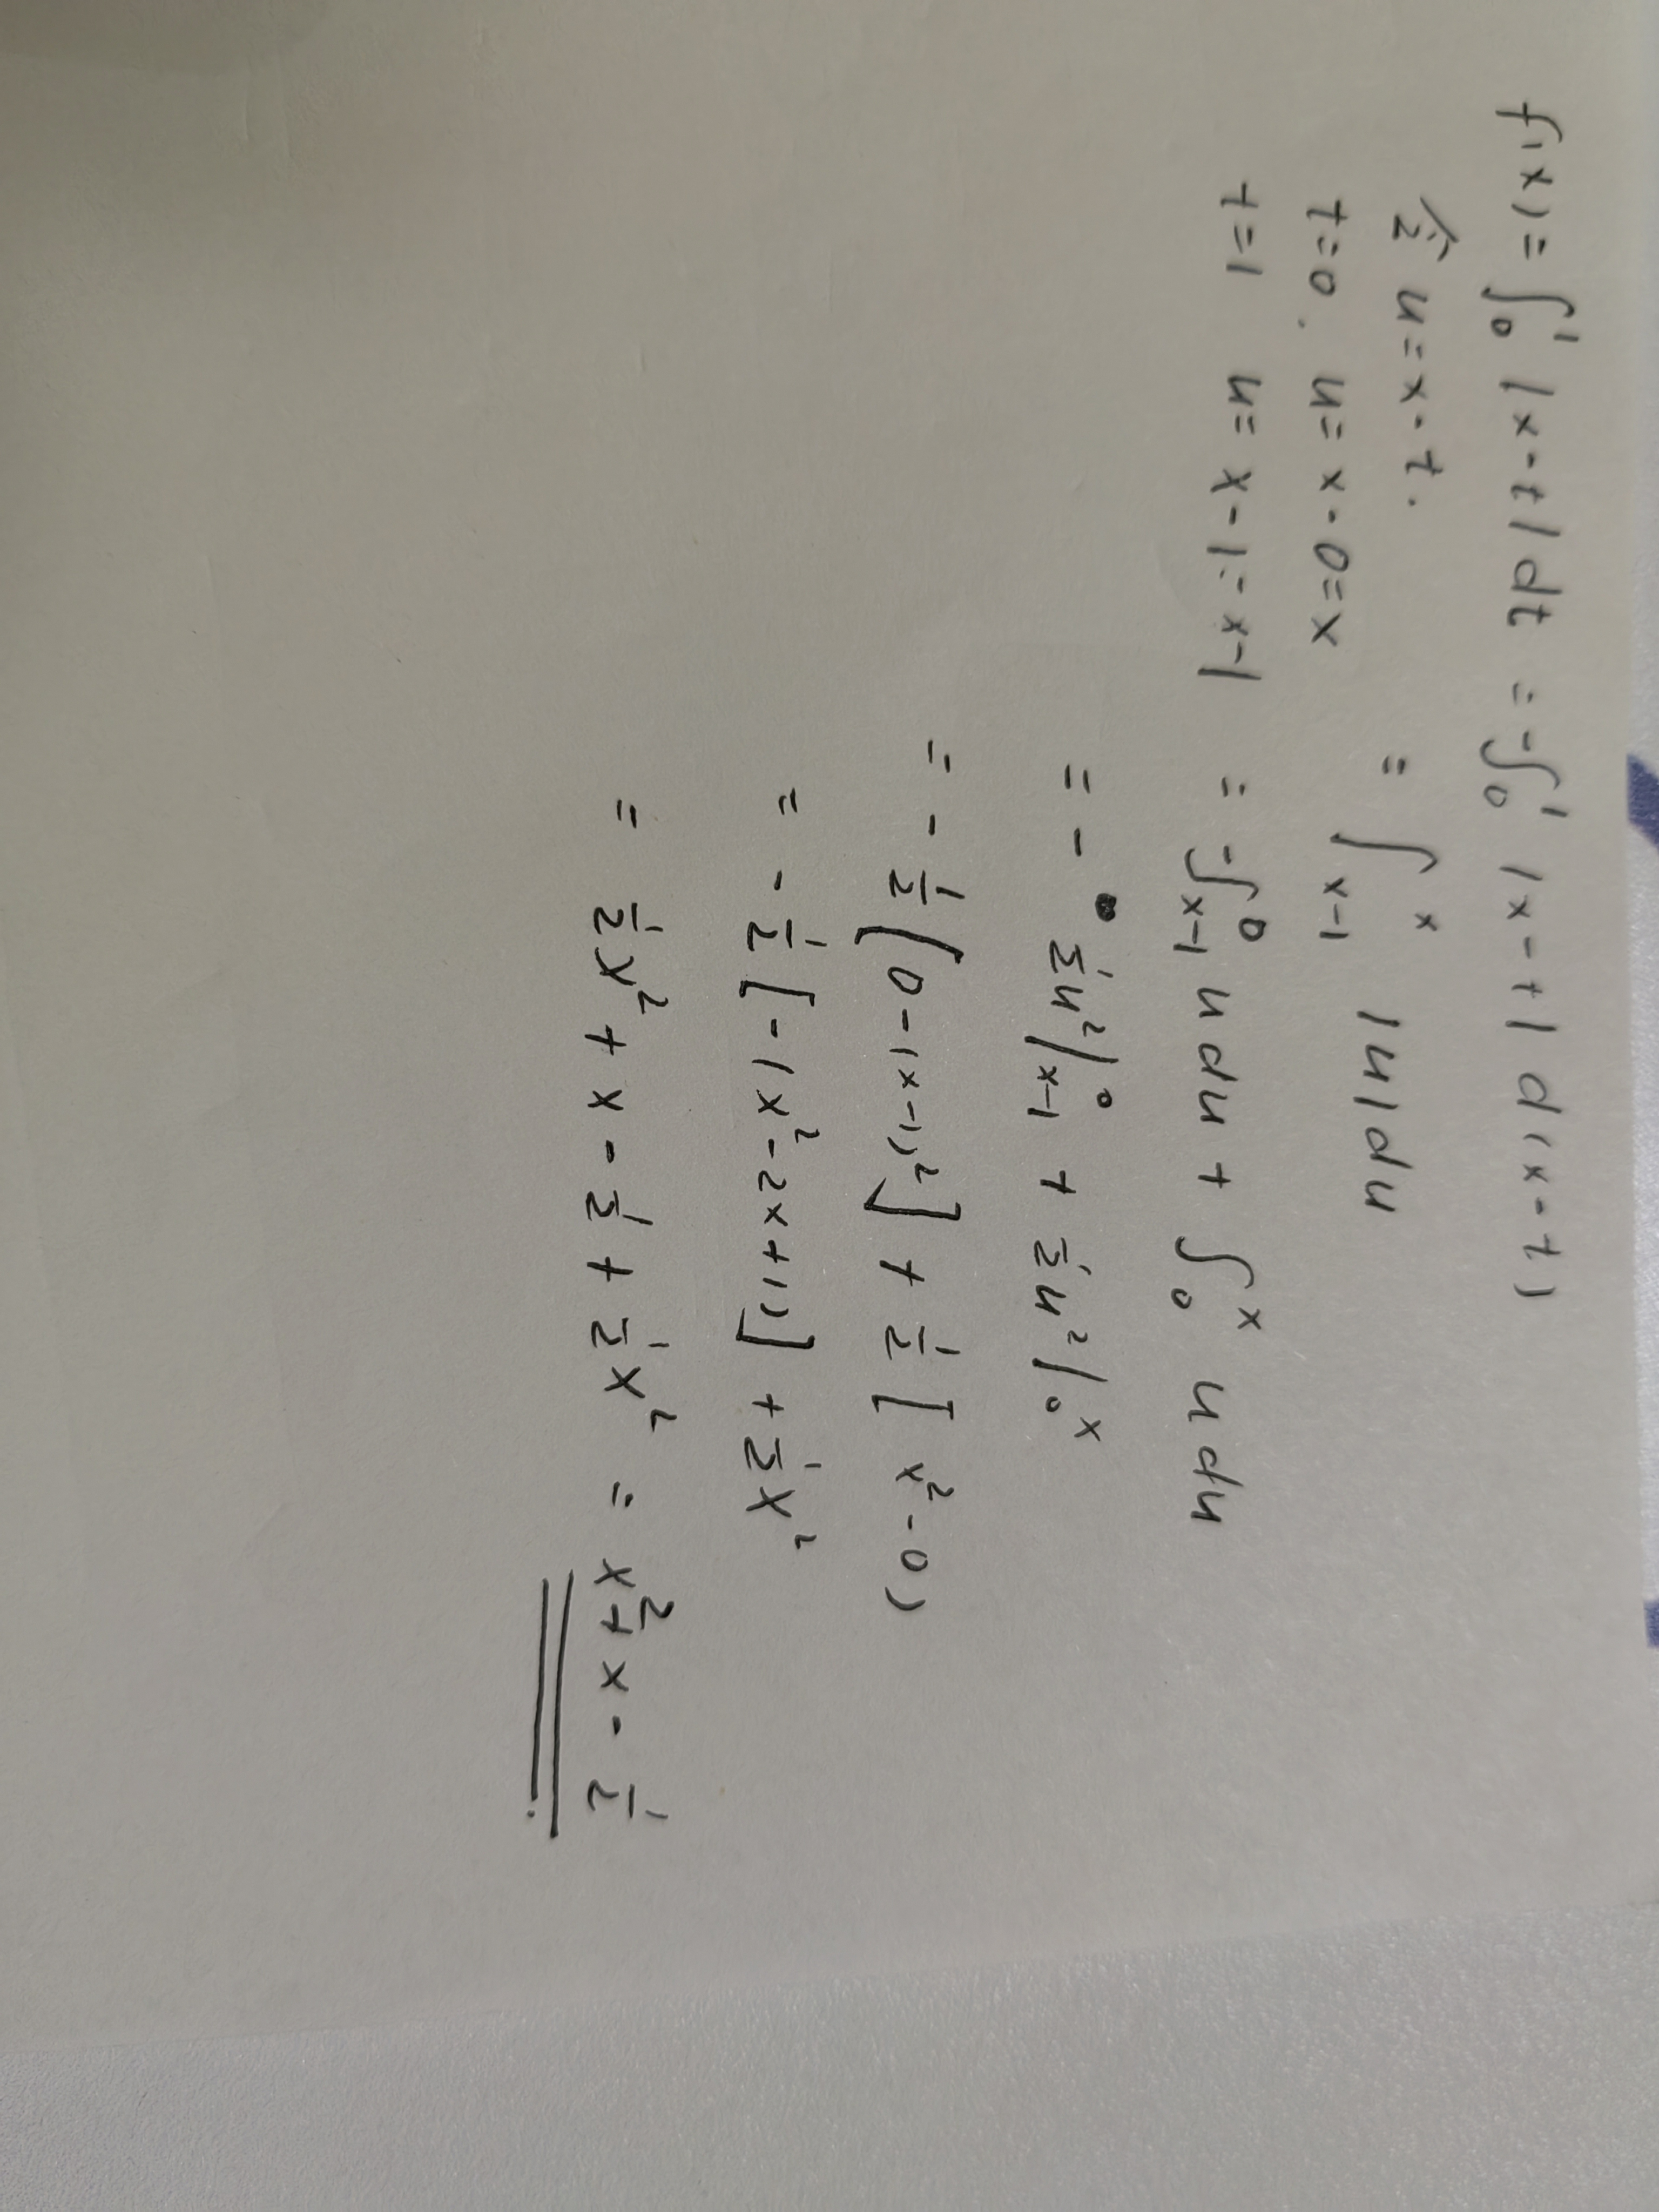 f(x) = ∫₀¹ |x-t| dt = -∫₀¹ |x-t| d(x-t)
令 u = x-t.
= ∫ₓ₋₁ˣ |u| du
t=0. u= x-0=x
t=1 u= x-1= x-1
= -∫ₓ₋₁⁰ u du + ∫₀ˣ u du
= - ½u²|ₓ₋₁⁰ + ½u²|₀ˣ
= - ½[0-(x-1)²] + ½[x²-0)
= - ½[-(x²-2x+1)] + ½x²
= ½x² + x - ½ + ½x² = x²+x-½